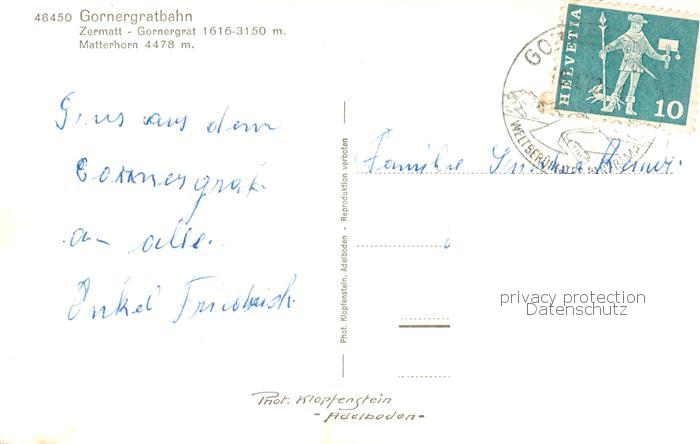 48450 Gornergratbahn
Zermatt - Gornergrat 1616-3150 m.
Matterhorn 4478 m.
HELVETIA
10
Gruss aus dem
Gornergrat
an alle.
Onkel Friedrich
Familie
Phot. Klopfenstein, Adelboden - Reproduktion verboten
privacy protection
Datenschutz
Phot. Klopfenstein
- Adelboden -